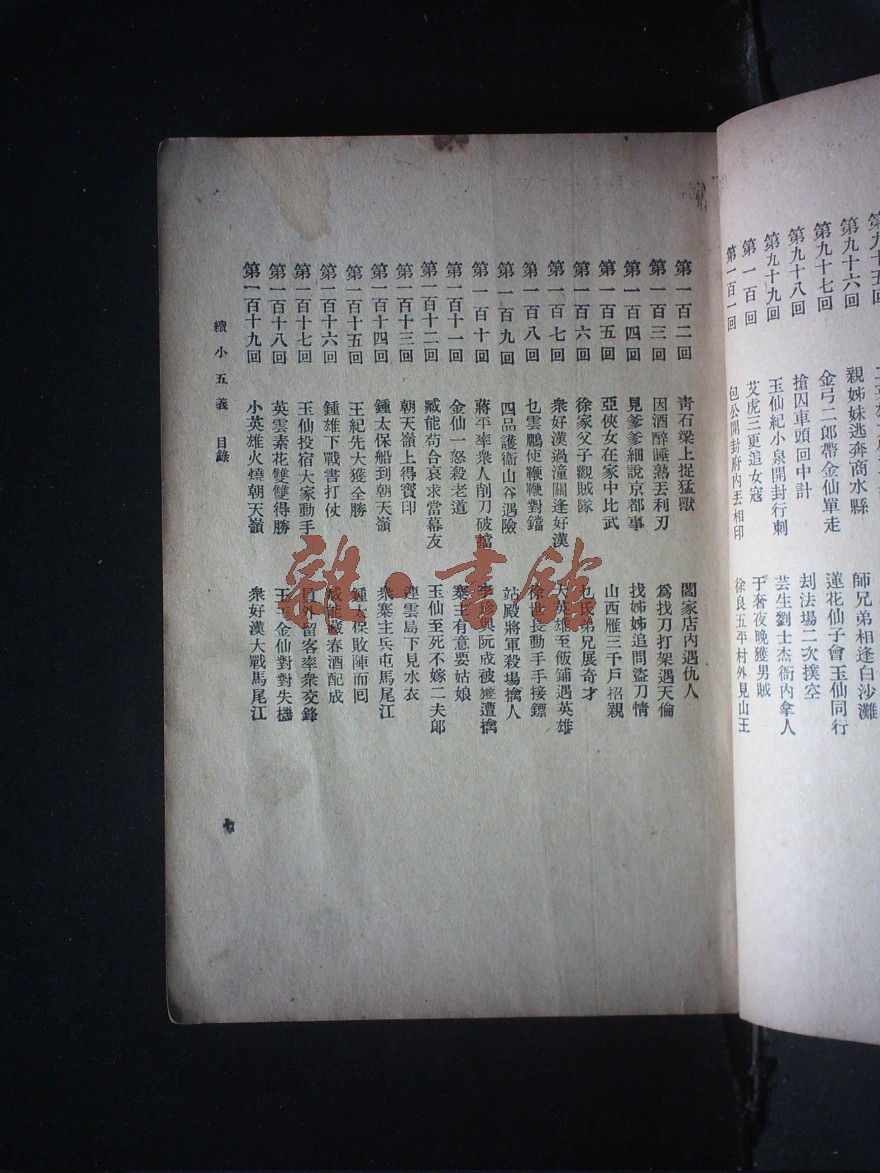 第九十五回
第九十六回 親姊妹逃奔商水縣 師兄弟相逢白沙灘
第九十七回 金弓二郎帶金仙單走 蓮花仙子會玉仙同行
第九十八回 搶囚車頭回中計 刦法場二次撲空
第九十九回 玉仙紀小泉開封行刺 芸生劉士杰衙內拿人
第一百回 艾虎三更追女寇 于奢夜晚獲男賊
第一百一回 包公開封府內丟相印 徐良五平村外見山王
第一百二回 靑石梁上捉猛獸 閻家店內遇仇人
第一百三回 因酒醉睡熟丟利刃 爲找刀打架遇天倫
第一百四回 見爹爹細說京都事 找姊姊追問盜刀情
第一百五回 亞俠女在家中比武 山西雁三千戶招親
第一百六回 徐家父子觀賊隊 乜氏弟兄展奇才
第一百七回 衆好漢過潼關逢好漢 大英雄至飯鋪遇英雄
第一百八回 乜雲鵬使鞭鞭對鐺 徐世長動手手接鏢
第一百九回 四品護衞山谷遇險 站殿將軍殺場擒人
第一百十回 蔣平率衆人削刀破擋 李珍與阮成被獲遭擒
第一百十一回 金仙一怒殺老道 寨主有意要姑娘
第一百十二回 臧能苟合哀求當幕友 玉仙至死不嫁二夫郞
第一百十三回 朝天嶺上得寳印 連雲島下見水衣
第一百十四回 鍾太保船到朝天嶺 衆寨主兵屯馬尾江
第一百十五回 王紀先大獲全勝 鍾太保敗陣而回
第一百十六回 鍾雄下戰書打仗 臧能藏春酒配成
第一百十七回 玉仙投宿大家動手 員外留客率衆交鋒
第一百十八回 英雲素花雙雙得勝 王玉金仙對對失機
第一百十九回 小英雄火燒朝天嶺 衆好漢大戰馬尾江
續小五義 目錄
七
雜·書館